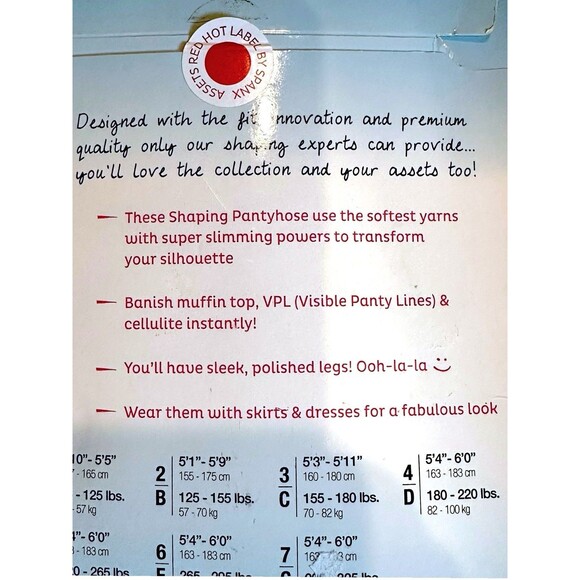 ASSETS RED HOT LABEL BY SPANX
Designed with the fit innovation and premium
quality only our shaping experts can provide...
you'll love the collection and your assets too!
— These Shaping Pantyhose use the softest yarns
with super slimming powers to transform
your silhouette
— Banish muffin top, VPL (Visible Panty Lines) &
cellulite instantly!
— You'll have sleek, polished legs! Ooh-la-la
— Wear them with skirts & dresses for a fabulous look
10"- 5'5"
- 165 cm
- 125 lbs.
- 57 kg
2
B
5'1"- 5'9"
155 - 175 cm
125 - 155 lbs.
57 - 70 kg
3
C
5'3"- 5'11"
160 - 180 cm
155 - 180 lbs.
70 - 82 kg
4
D
5'4"- 6'0"
163 - 183 cm
180 - 220 lbs.
82 - 100 kg
"- 6'0"
- 183 cm
- 265 lbs.
6
5'4"- 6'0"
163 - 183 cm
7
5'4"- 6'0"